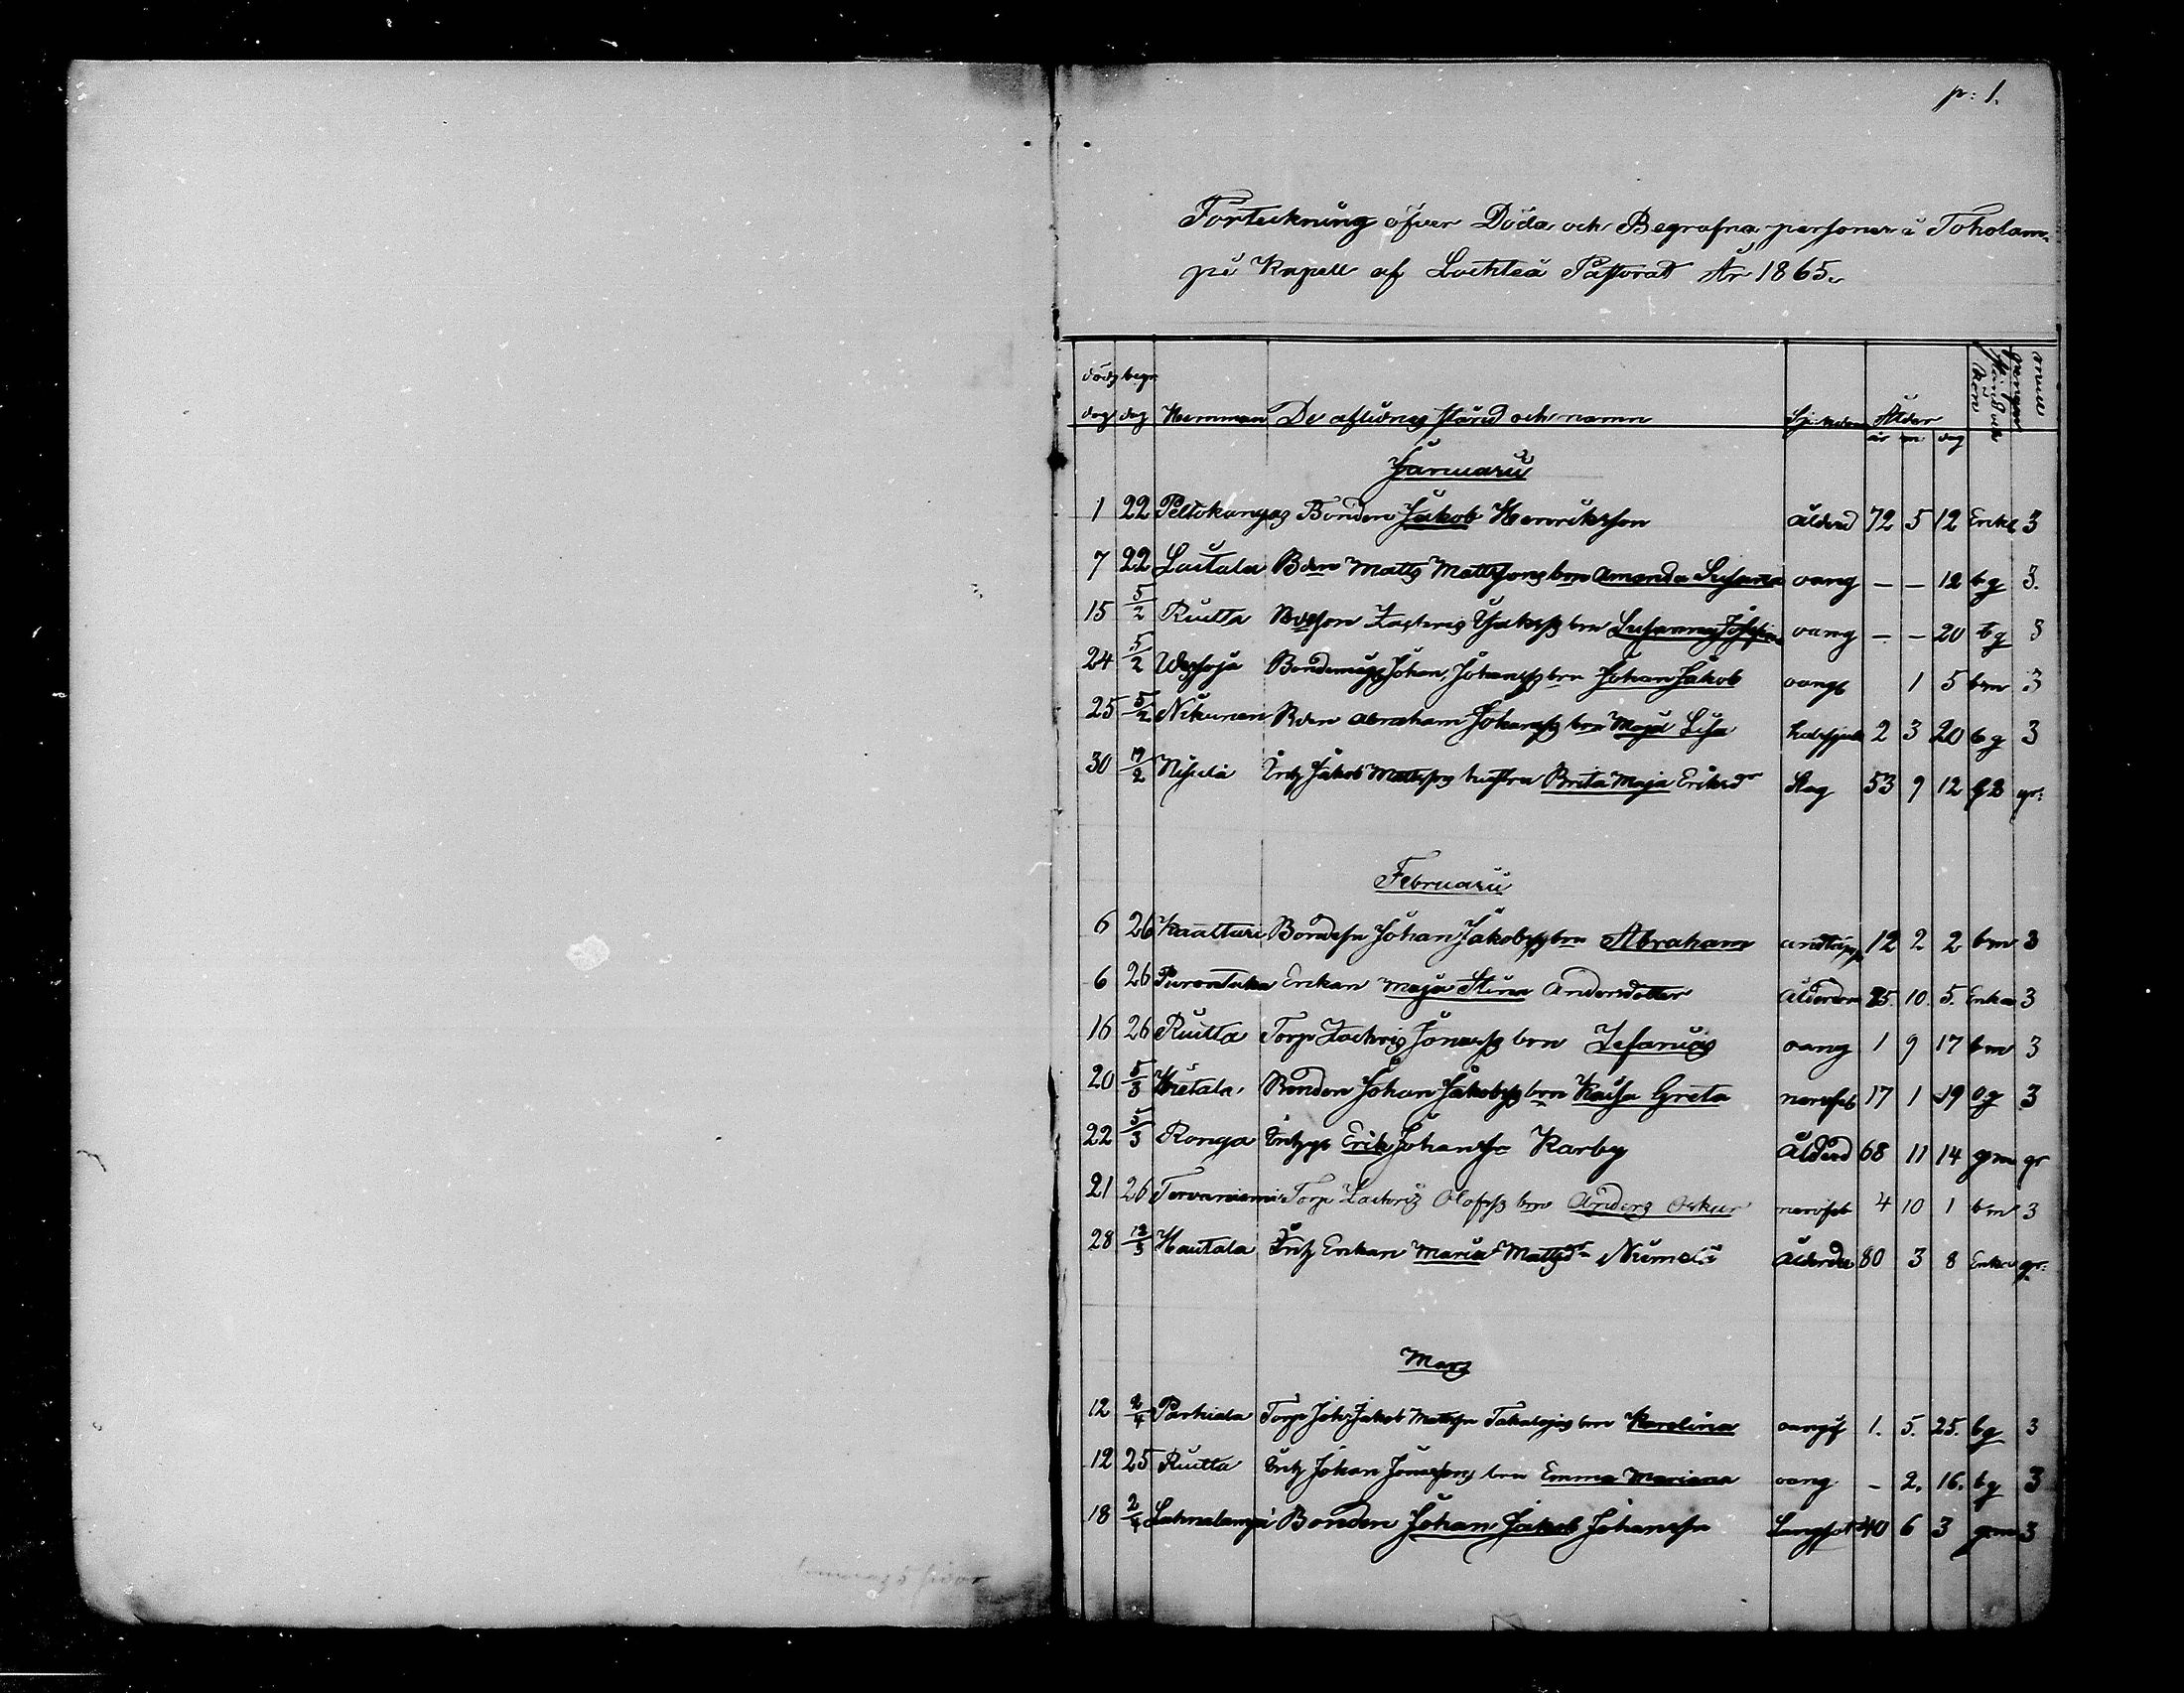 p: 1.
Forteckning öfver Döda och Begrafna personer i Toholam-
pi Kapell af Lochteå Pastorat År 1865.
död begr
dag dag Hemman De aflidnas stånd och namn Sjukdom Ålder
år m dag
Januarii
1 22 Peltokangas Bonden Jakob Henriksson ålderd 72 5 12 Enkl 3
7 22 Lautala Bden Matts Mattssons brn Amanda Susanna oang — — 12 bg 3.
15 5/2 Ruitta Bdeson Zachris brn Susanna oang — — 20 bg 3
24 5/2 Johan Johanss brn Johan Jakob oang 1 5 bm 3
25 5/2 Nikunen Bden Abraham Johanss brn Maja Lisa 2 3 20 bg 3
30 19/2 Jakob Mattss hustru Brita Maja Eriksdr Slag 53 9 12 gr:
Februarii
6 26 Bondesn Johan Jakobss brn Abraham 12 2 2 bm 3
6 26 Enkan Maja Stina Andersdotter 10. 5. Enka 3
16 26 Ruitta Torp Zachris Jonass brn Zefanias oang 1 9 17 bm 3
20 5/3 Bonden Johan Jakobss brn Kaisa Greta nervfeb 17 1 19 og 3
22 5/3 Ronga Erik Johanss Karby Ålderd 68 11 14 gm gr
21 26 Torvaniemi Torp Zachris Olofss brn Anders Oskar nervfeb 4 10 1 bm 3
28 12/3 Hautala Enkan Maria Mattsdr 80 3 8 Enka gr:
Mars
12 2/4 Parhiala Torp Joh. Jakob Mattsn brn Karolina oang 1. 5. 25. bg 3
12 25 Ruitta Johan Jonassons brn Emma Mariana oang — 2. 16. bg 3
18 2/4 Lahnalampi Bonden Johan Jakob Johanssn Lungsot 40 6 3 gm 3